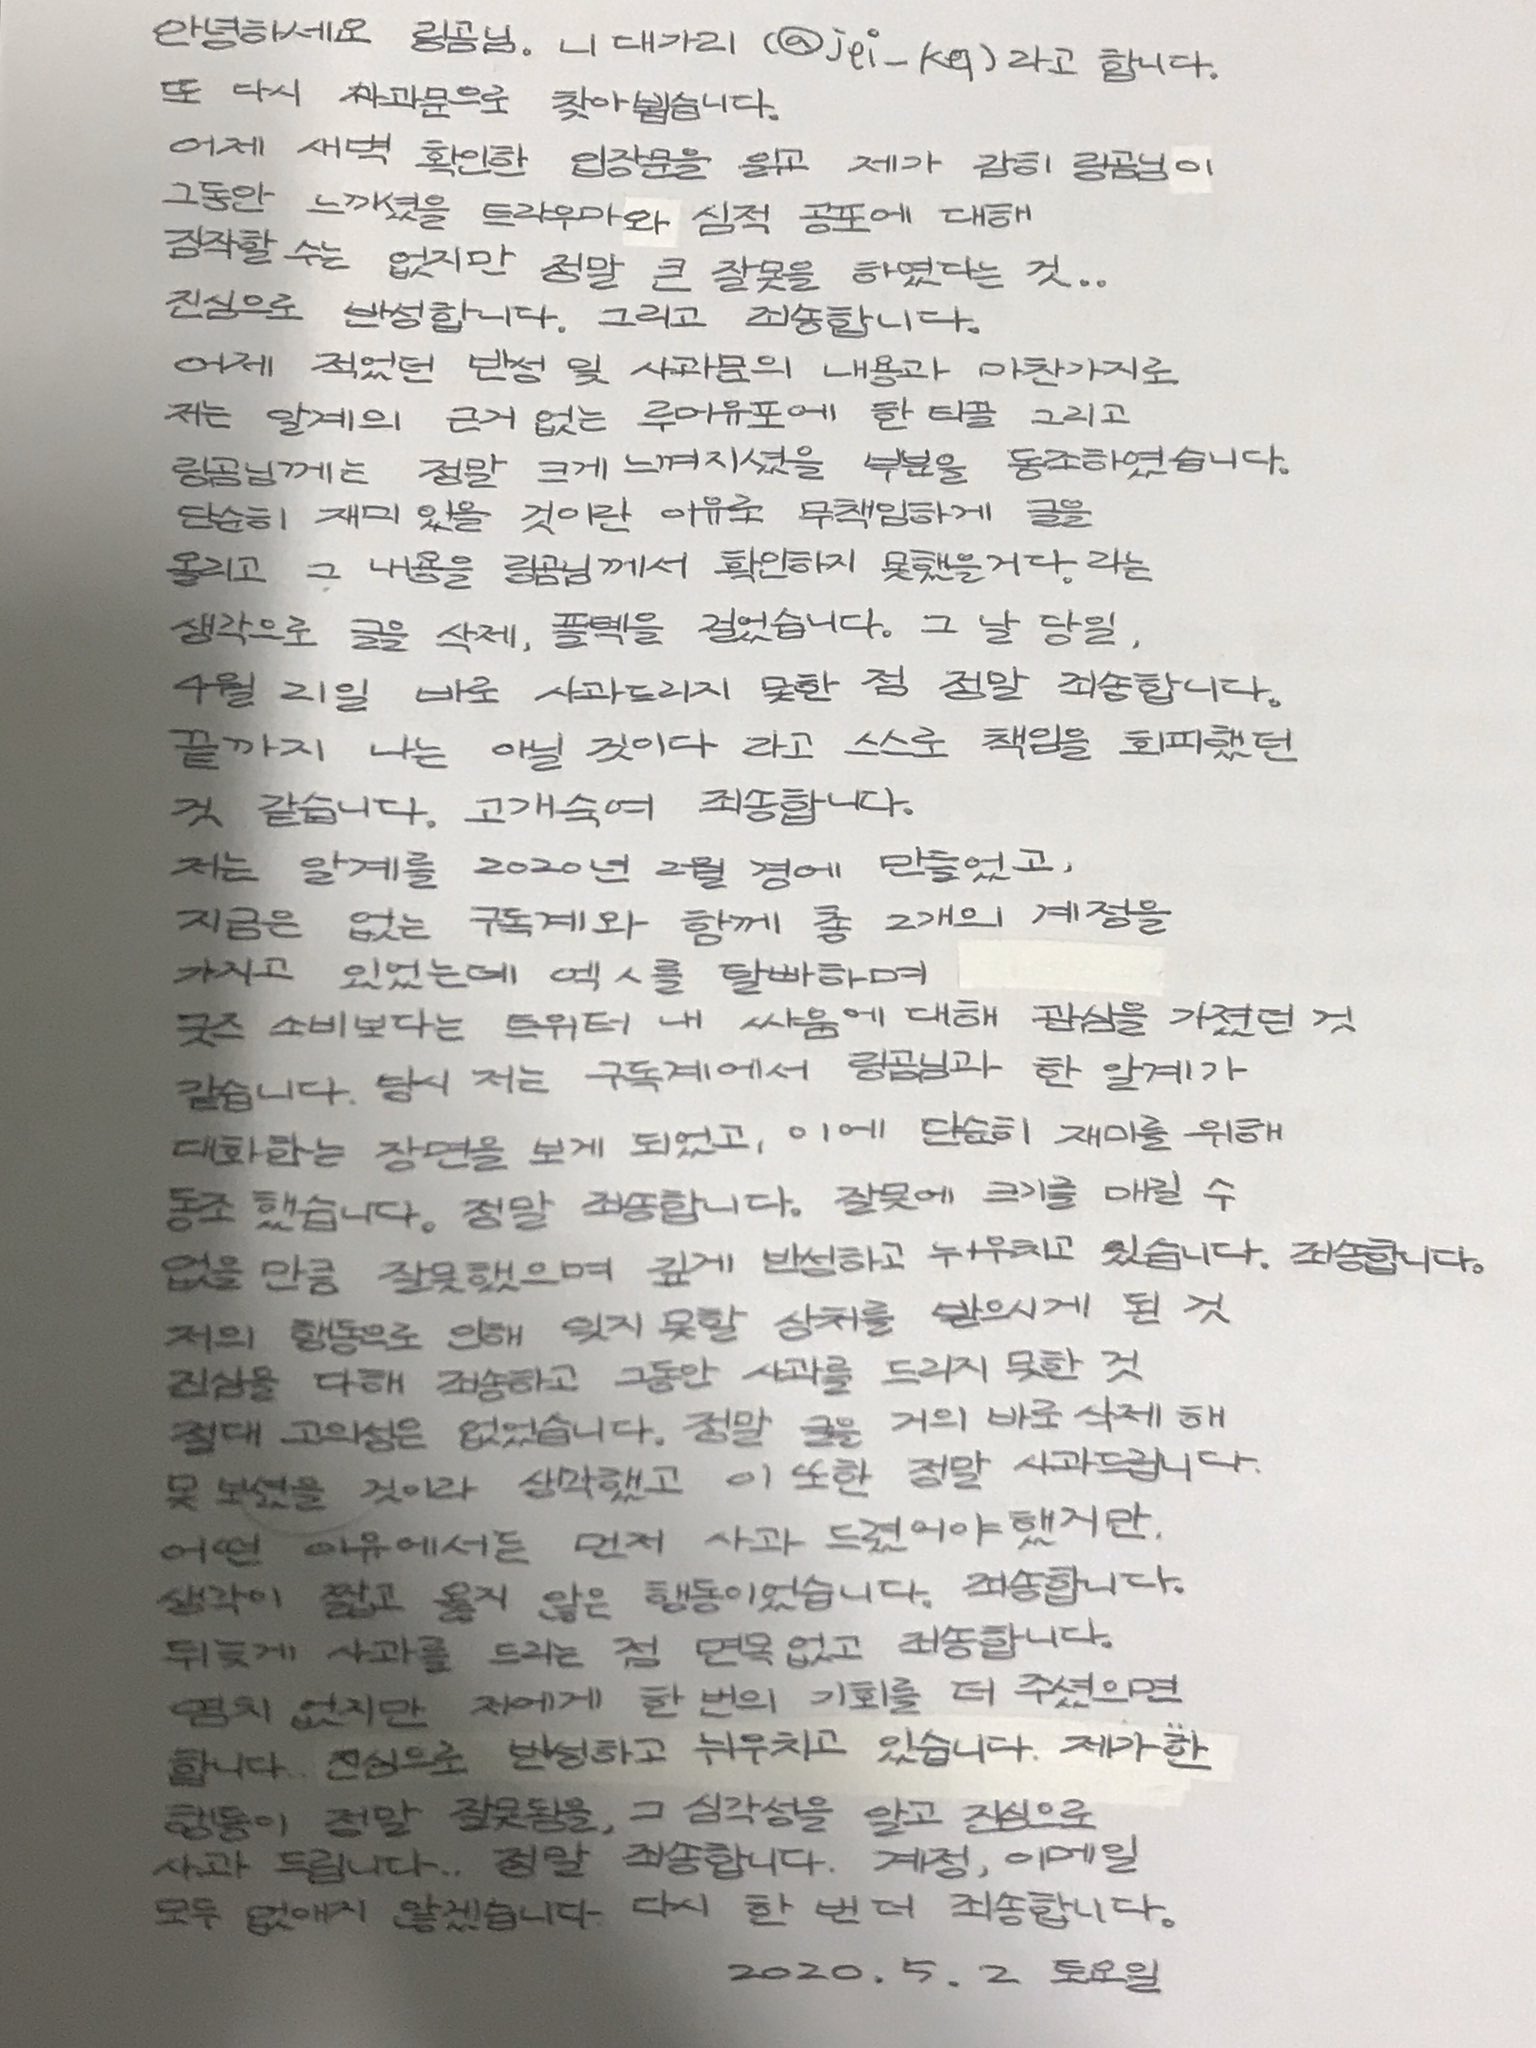 안녕하세요 링곰님. 니 대가리 (@jei_keq)라고 합니다.
또 다시 사과문으로 찾아뵙습니다.
어제 새벽 확인한 입장문을 읽고 제가 감히 링곰님이
그동안 느끼셨을 트라우마와 심적 공포에 대해
짐작할 수는 없지만 정말 큰 잘못을 하였다는 것..
진심으로 반성합니다. 그리고 죄송합니다.
어제 적었던 반성 및 사과문의 내용과 마찬가지로
저는 알계의 근거 없는 루머유포에 한 티끌 그리고
링곰님께는 정말 크게 느껴지셨을 부분을 동조하였습니다.
단순히 재미 있을 것이란 이유로 무책임하게 글을
올리고 그 내용을 링곰님께서 확인하지 못했을거다. 라는
생각으로 글을 삭제, 플텍을 걸었습니다. 그 날 당일,
4월 21일 바로 사과드리지 못한 점 정말 죄송합니다.
끝까지 나는 아닐 것이다 라고 스스로 책임을 회피했던
것 같습니다. 고개숙여 죄송합니다.
저는 알계를 2020년 2월 경에 만들었고,
지금은 없는 구독계와 함께 총 2개의 계정을
가지고 있었는데 엑소를 탈빠하며
굿즈 소비보다는 트위터 내 싸움에 대해 관심을 가졌던 것
같습니다. 당시 저는 구독계에서 링곰님과 한 알계가
대화하는 장면을 보게 되었고, 이에 단순히 재미를 위해
동조 했습니다. 정말 죄송합니다. 잘못에 크기를 매길 수
없을 만큼 잘못했으며 깊게 반성하고 뉘우치고 있습니다. 죄송합니다.
저의 행동으로 인해 잊지 못할 상처를 받으시게 된 것
진심을 다해 죄송하고 그동안 사과를 드리지 못한 것
절대 고의성은 없었습니다. 정말 글을 거의 바로 삭제 해
못 보셨을 것이라 생각했고 이 또한 정말 사과드립니다.
어떤 이유에서든 먼저 사과 드렸어야 했지만,
생각이 짧고 옳지 않은 행동이었습니다. 죄송합니다.
뒤늦게 사과를 드리는 점 면목없고 죄송합니다.
염치 없지만 저에게 한 번의 기회를 더 주셨으면
합니다.. 진심으로 반성하고 뉘우치고 있습니다. 제가 한
행동이 정말 잘못됨을, 그 심각성을 알고 진심으로
사과 드립니다.. 정말 죄송합니다. 계정, 이메일
모두 없애지 않겠습니다. 다시 한 번 더 죄송합니다.
2020. 5. 2 토요일